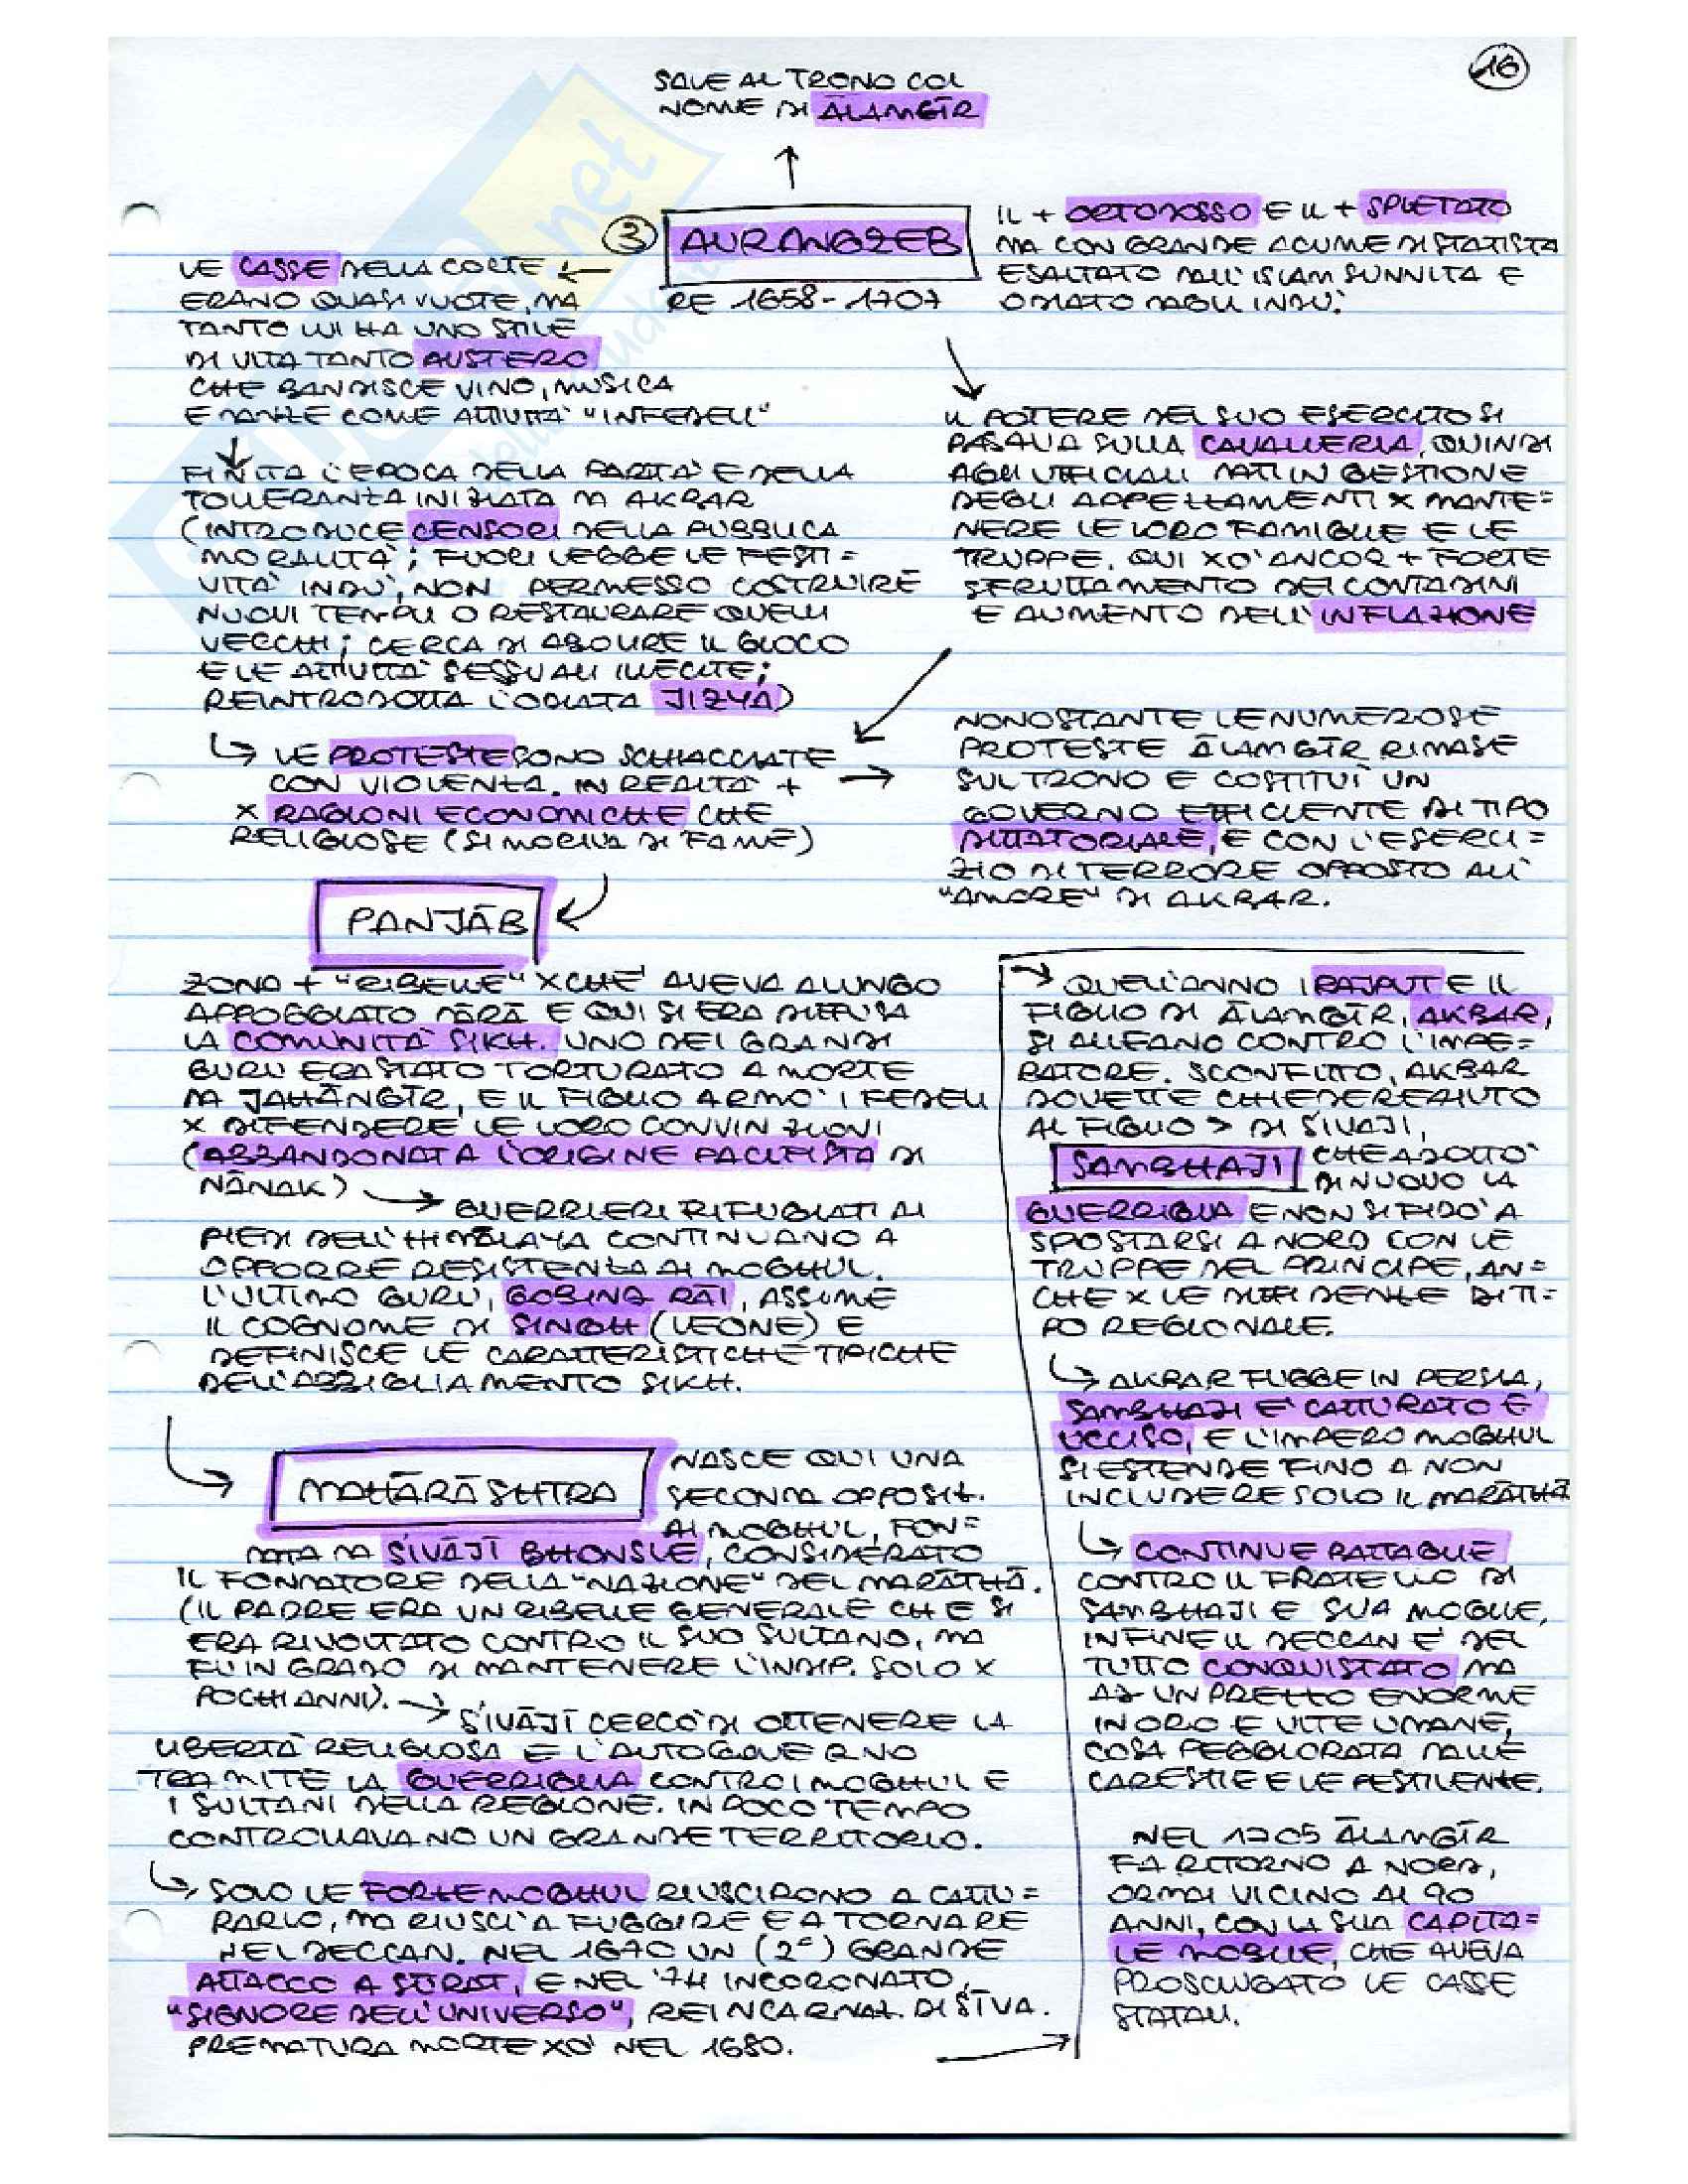 16
SALE AL TRONO COL
NOME DI ĀLAMGĪR
3 AURANGZEB
RE 1658-1707
IL + ORTODOSSO E IL + SPIETATO
MA CON GRANDE ACUME DI STATISTA
ESALTATO DALL'ISLAM SUNNITA E
ODIATO DAGLI INDÙ.
LE CASSE DELLA CORTE
ERANO QUASI VUOTE, MA
TANTO LUI HA UNO STILE
DI VITA TANTO AUSTERO
CHE BANDISCE VINO, MUSICA
E DANZE COME ATTIVITÀ "INFEDELI"
FINITA L'EPOCA DELLA PARITÀ E DELLA
TOLLERANZA INIZIATA DA AKBAR
(INTRODUCE CENSORI DELLA PUBBLICA
MORALITÀ; FUORI LEGGE LE FESTI=
VITÀ INDÙ, NON PERMESSO COSTRUIRE
NUOVI TEMPLI O RESTAURARE QUELLI
VECCHI; CERCA DI ABOLIRE IL GIOCO
E LE ATTIVITÀ SESSUALI ILLECITE;
REINTRODOTTA L'ODIATA JIZYA)
LE PROTESTE SONO SCHIACCIATE
CON VIOLENZA. IN REALTÀ +
X RAGIONI ECONOMICHE CHE
RELIGIOSE (SI MORIVA DI FAME)
IL POTERE DEL SUO ESERCITO SI
BASAVA SULLA CAVALLERIA, QUINDI
AGLI UFFICIALI DATI IN GESTIONE
DEGLI APPEZZAMENTI X MANTE=
NERE LE LORO FAMIGLIE E LE
TRUPPE. QUI XÒ ANCOR + FORTE
SFRUTTAMENTO DEI CONTADINI
E AUMENTO DELL'INFLAZIONE
NONOSTANTE LE NUMEROSE
PROTESTE ĀLAMGĪR RIMASE
SUL TRONO E COSTITUÌ UN
GOVERNO EFFICIENTE DI TIPO
DITTATORIALE, E CON L'ESERCI=
ZIO DI TERRORE OPPOSTO ALL'
"AMORE" DI AKBAR.
PANJĀB
ZONA + "RIBELLE" XCHÈ AVEVA A LUNGO
APPOGGIATO DĀRĀ E QUI SI ERA DIFFUSA
LA COMUNITÀ SIKH. UNO DEI GRANDI
GURU ERA STATO TORTURATO A MORTE
DA JAHĀNGĪR, E IL FIGLIO ARMÒ I FEDELI
X DIFENDERE LE LORO CONVINZIONI
(ABBANDONATA L'ORIGINE PACIFISTA DI
NĀNAK)
GUERRIERI RIFUGIATI AI
PIEDI DELL'HIMALAYA CONTINUANO A
OPPORRE RESISTENZA AI MOGHUL.
L'ULTIMO GURU, GOBIND RĀI, ASSUME
IL COGNOME DI SINGH (LEONE) E
DEFINISCE LE CARATTERISTICHE TIPICHE
DELL'ABBIGLIAMENTO SIKH.
MAHĀRĀSHTRA
NASCE QUI UNA
SECONDA OPPOSIZ.
AI MOGHUL, FON=
DATA DA SIVĀJĪ BHONSLE, CONSIDERATO
IL FONDATORE DELLA "NAZIONE" DEL MARĀTHĀ.
(IL PADRE ERA UN RIBELLE GENERALE CHE SI
ERA RIVOLTATO CONTRO IL SUO SULTANO, MA
FU IN GRADO DI MANTENERE L'INDIP. SOLO X
POCHI ANNI).
SIVĀJĪ CERCÒ DI OTTENERE LA
LIBERTÀ RELIGIOSA E L'AUTOGOVERNO
TRAMITE LA GUERRIGLIA CONTRO I MOGHUL E
I SULTANI DELLA REGIONE. IN POCO TEMPO
CONTROLLAVANO UN GRANDE TERRITORIO.
SOLO LE FORZE MOGHUL RIUSCIRONO A CATTU=
RARLO, MA RIUSCÌ A FUGGIRE E A TORNARE
NEL DECCAN. NEL 1670 UN (2°) GRANDE
ATTACCO A SŪRAT, E NEL '74 INCORONATO
"SIGNORE DELL'UNIVERSO", REINCARNAZ. DI ŚIVA.
PREMATURA MORTE XÒ NEL 1680.
QUELL'ANNO I RAJPUT E IL
FIGLIO DI ĀLAMGĪR, AKBAR,
SI ALLEANO CONTRO L'IMPE=
RATORE. SCONFITTO, AKBAR
DOVETTE CHIEDERE AIUTO
AL FIGLIO > DI SIVAJI,
SAMBHAJI CHE ADOTTÒ
DI NUOVO LA
GUERRIGLIA E NON SI FIDÒ A
SPOSTARSI A NORD CON LE
TRUPPE DEL PRINCIPE, AN=
CHE X LE DIFFIDENZE DI TI=
PO REGIONALE.
AKBAR FUGGE IN PERSIA,
SAMBHAJI È CATTURATO E
UCCISO, E L'IMPERO MOGHUL
SI ESTENDE FINO A NON
INCLUDERE SOLO IL MARĀTHĀ
CONTINUE BATTAGLIE
CONTRO IL FRATELLO DI
SAMBHAJI E SUA MOGLIE,
INFINE IL DECCAN È DEL
TUTTO CONQUISTATO MA
AD UN PREZZO ENORME
IN ORO E VITE UMANE,
COSA PEGGIORATA DALLE
CARESTIE E LE PESTILENZE.
NEL 1705 ĀLAMGĪR
FA RITORNO A NORD,
ORMAI VICINO AI 90
ANNI, CON LA SUA CAPITA=
LE MOBILE, CHE AVEVA
PROSCIUGATO LE CASSE
STATALI.